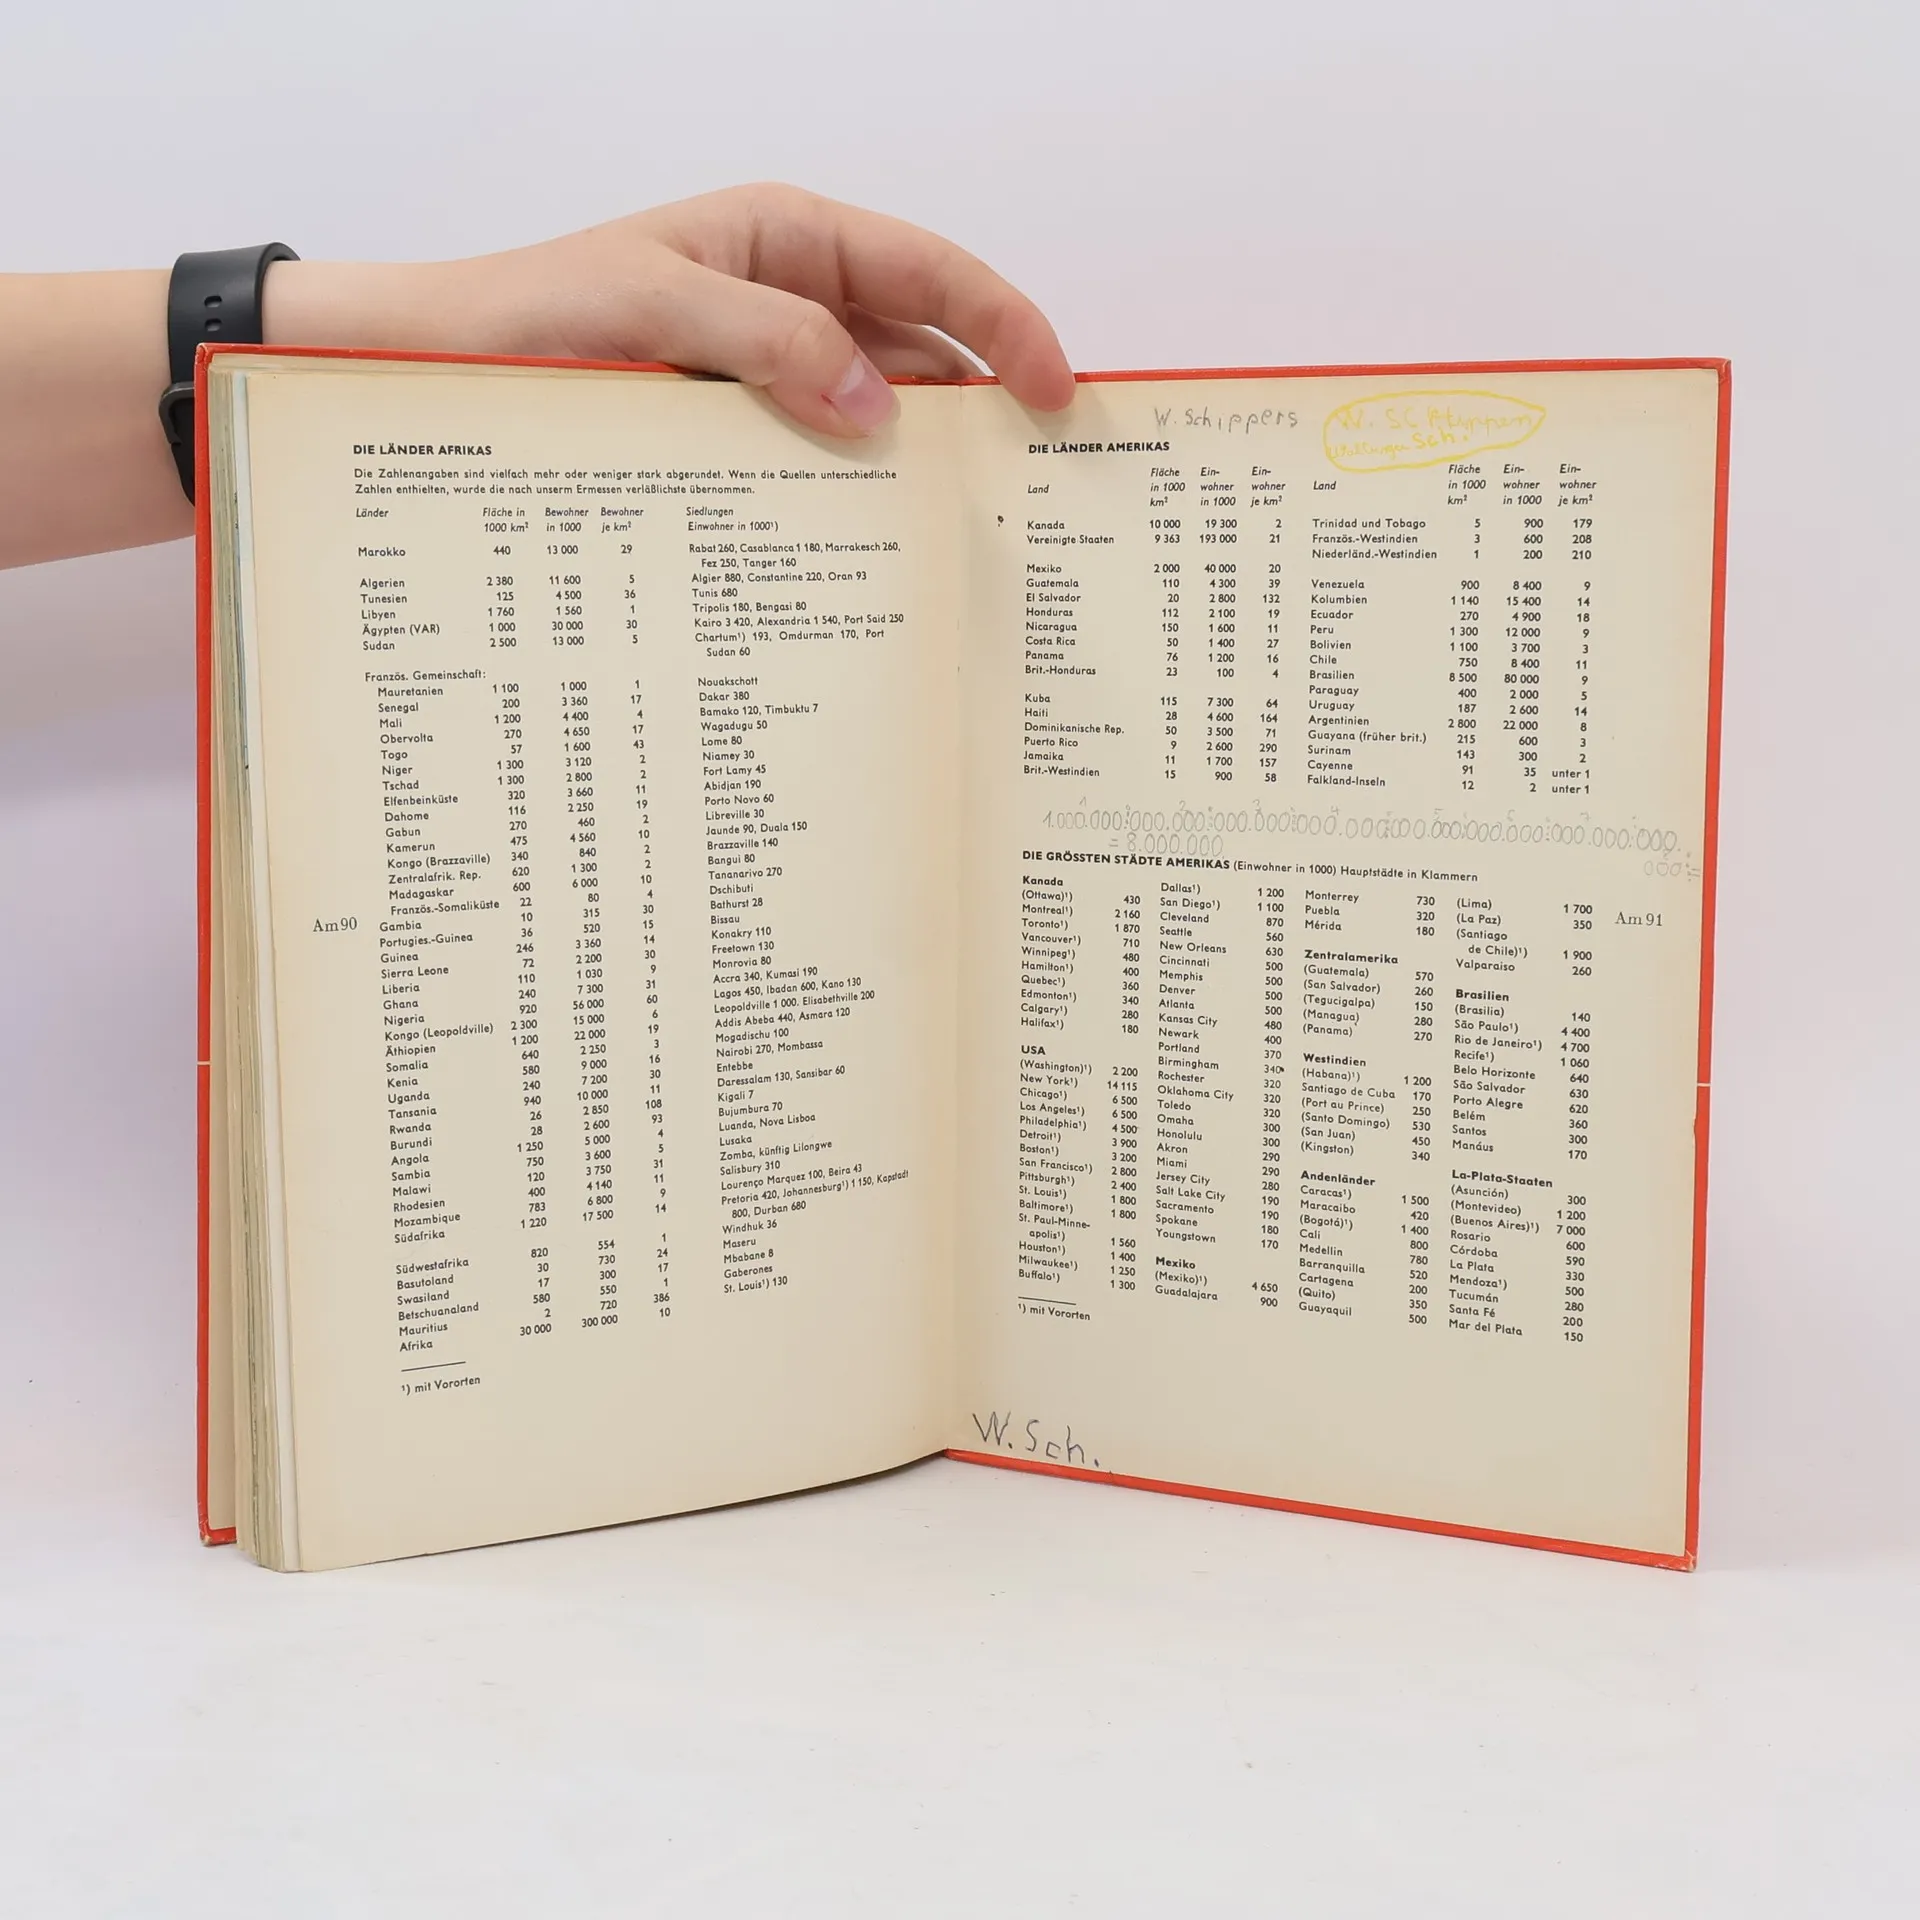 DIE LÄNDER AFRIKAS
Die Zahlenangaben sind vielfach mehr oder weniger stark abgerundet. Wenn die Quellen unterschiedliche
Zahlen enthielten, wurde die nach unserm Ermessen verläßlichste übernommen.
Länder Fläche in Bewohner Bewohner Siedlungen
1000 km² in 1000 je km² Einwohner in 1000¹)
Marokko 440 13 000 29 Rabat 260, Casablanca 1 180, Marrakesch 260,
Fez 250, Tanger 160
Algerien 2 380 11 600 5 Algier 880, Constantine 220, Oran 93
Tunesien 125 4 500 36 Tunis 680
Libyen 1 760 1 560 1 Tripolis 180, Bengasi 80
Ägypten (VAR) 1 000 30 000 30 Kairo 3 420, Alexandria 1 540, Port Said 250
Sudan 2 500 13 000 5 Chartum¹) 193, Omdurman 170, Port
Sudan 60
Französ. Gemeinschaft:
Mauretanien 1 100 1 000 1 Nouakschott
Senegal 200 3 360 17 Dakar 380
Mali 1 200 4 400 4 Bamako 120, Timbuktu 7
Obervolta 270 4 650 17 Wagadugu 50
Togo 57 1 600 43 Lome 80
Niger 1 300 3 120 2 Niamey 30
Tschad 1 300 2 800 2 Fort Lamy 45
Elfenbeinküste 320 3 660 11 Abidjan 190
Dahome 116 2 250 19 Porto Novo 60
Gabun 270 460 2 Libreville 30
Kamerun 475 4 560 10 Jaunde 90, Duala 150
Kongo (Brazzaville) 340 840 2 Brazzaville 140
Zentralafrik. Rep. 620 1 300 2 Bangui 80
Madagaskar 600 6 000 10 Tananarivo 270
Französ.-Somaliküste 22 80 4 Dschibuti
Gambia 10 315 30 Bathurst 28
Portugies.-Guinea 36 520 15 Bissau
Guinea 246 3 360 14 Konakry 110
Sierra Leone 72 2 200 30 Freetown 130
Liberia 110 1 030 9 Monrovia 80
Ghana 240 7 300 31 Accra 340, Kumasi 190
Nigeria 920 56 000 60 Lagos 450, Ibadan 600, Kano 130
Kongo (Leopoldville) 2 300 15 000 6 Leopoldville 1 000. Elisabethville 200
Äthiopien 1 200 22 000 19 Addis Abeba 440, Asmara 120
Somalia 640 2 250 3 Mogadischu 100
Kenia 580 9 000 16 Nairobi 270, Mombassa
Uganda 240 7 200 30 Entebbe
Tansania 940 10 000 11 Daressalam 130, Sansibar 60
Rwanda 26 2 850 108 Kigali 7
Burundi 28 2 600 93 Bujumbura 70
Angola 1 250 5 000 4 Luanda, Nova Lisboa
Sambia 750 3 600 5 Lusaka
Malawi 120 3 750 31 Zomba, künftig Lilongwe
Rhodesien 400 4 140 11 Salisbury 310
Mozambique 783 6 800 9 Lourenço Marquez 100, Beira 43
Südafrika 1 220 17 500 14 Pretoria 420, Johannesburg¹) 1 150, Kapstadt
800, Durban 680
Südwestafrika 820 554 1 Windhuk 36
Basutoland 30 730 24 Maseru
Swasiland 17 300 17 Mbabane 8
Betschuanaland 580 550 1 Gaberones
Mauritius 2 720 386 St. Louis¹) 130
Afrika 30 000 300 000 10
¹) mit Vororten
Am 90
W. Schippers
DIE LÄNDER AMERIKAS
Land Fläche in 1000 km² Ein-wohner in 1000 Ein-wohner je km²
Kanada 10 000 19 300 2
Vereinigte Staaten 9 363 193 000 21
Mexiko 2 000 40 000 20
Guatemala 110 4 300 39
El Salvador 20 2 800 132
Honduras 112 2 100 19
Nicaragua 150 1 600 11
Costa Rica 50 1 400 27
Panama 76 1 200 16
Brit.-Honduras 23 100 4
Kuba 115 7 300 64
Haiti 28 4 600 164
Dominikanische Rep. 50 3 500 71
Puerto Rico 9 2 600 290
Jamaika 11 1 700 157
Brit.-Westindien 15 900 58
Land Fläche in 1000 km² Ein-wohner in 1000 Ein-wohner je km²
Trinidad und Tobago 5 900 179
Französ.-Westindien 3 600 208
Niederländ.-Westindien 1 200 210
Venezuela 900 8 400 9
Kolumbien 1 140 15 400 14
Ecuador 270 4 900 18
Peru 1 300 12 000 9
Bolivien 1 100 3 700 3
Chile 750 8 400 11
Brasilien 8 500 80 000 9
Paraguay 400 2 000 5
Uruguay 187 2 600 14
Argentinien 2 800 22 000 8
Guayana (früher brit.) 215 600 3
Surinam 143 300 2
Cayenne 91 35 unter 1
Falkland-Inseln 12 2 unter 1
= 8.000.000
DIE GRÖSSTEN STÄDTE AMERIKAS (Einwohner in 1000) Hauptstädte in Klammern
Kanada
(Ottawa¹) 430
Montreal¹) 2 160
Toronto¹) 1 870
Vancouver¹) 710
Winnipeg¹) 480
Hamilton¹) 400
Quebec¹) 360
Edmonton¹) 340
Calgary¹) 280
Halifax¹) 180
USA
(Washington)¹) 2 200
New York¹) 14 115
Chicago¹) 6 500
Los Angeles¹) 6 500
Philadelphia¹) 4 500
Detroit¹) 3 900
Boston¹) 3 200
San Francisco¹) 2 800
Pittsburgh¹) 2 400
St. Louis¹) 1 800
Baltimore¹) 1 800
St. Paul-Minne-
apolis¹) 1 560
Houston¹) 1 400
Milwaukee¹) 1 250
Buffalo¹) 1 300
¹) mit Vororten
Dallas¹) 1 200
San Diego¹) 1 100
Cleveland 870
Seattle 560
New Orleans 630
Cincinnati 500
Memphis 500
Denver 500
Atlanta 500
Kansas City 480
Newark 400
Portland 370
Birmingham 340
Rochester 320
Oklahoma City 320
Toledo 320
Omaha 300
Honolulu 300
Akron 290
Miami 290
Jersey City 280
Salt Lake City 190
Sacramento 190
Spokane 180
Youngstown 170
Mexiko
(Mexiko)¹) 4 650
Guadalajara 900
Monterrey 730
Puebla 320
Mérida 180
Zentralamerika
(Guatemala) 570
(San Salvador) 260
(Tegucigalpa) 150
(Managua) 280
(Panama) 270
Westindien
(Habana)¹) 1 200
Santiago de Cuba 170
(Port au Prince) 250
(Santo Domingo) 530
(San Juan) 450
(Kingston) 340
Andenländer
Caracas¹) 1 500
Maracaibo 420
(Bogotá)¹) 1 400
Cali 800
Medellin 780
Barranquilla 520
Cartagena 200
(Quito) 350
Guayaquil 500
(Lima) 1 700
(La Paz) 350
(Santiago
de Chile)¹) 1 900
Valparaiso 260
Brasilien
(Brasilia) 140
São Paulo¹) 4 400
Rio de Janeiro¹) 4 700
Recife¹) 1 060
Belo Horizonte 640
São Salvador 630
Porto Alegre 620
Belém 360
Santos 300
Manáus 170
La-Plata-Staaten
(Asunción) 300
(Montevideo) 1 200
(Buenos Aires)¹) 7 000
Rosario 600
Córdoba 590
La Plata 330
Mendoza¹) 500
Tucumán 280
Santa Fé 200
Mar del Plata 150
Am 91
W. Sch.